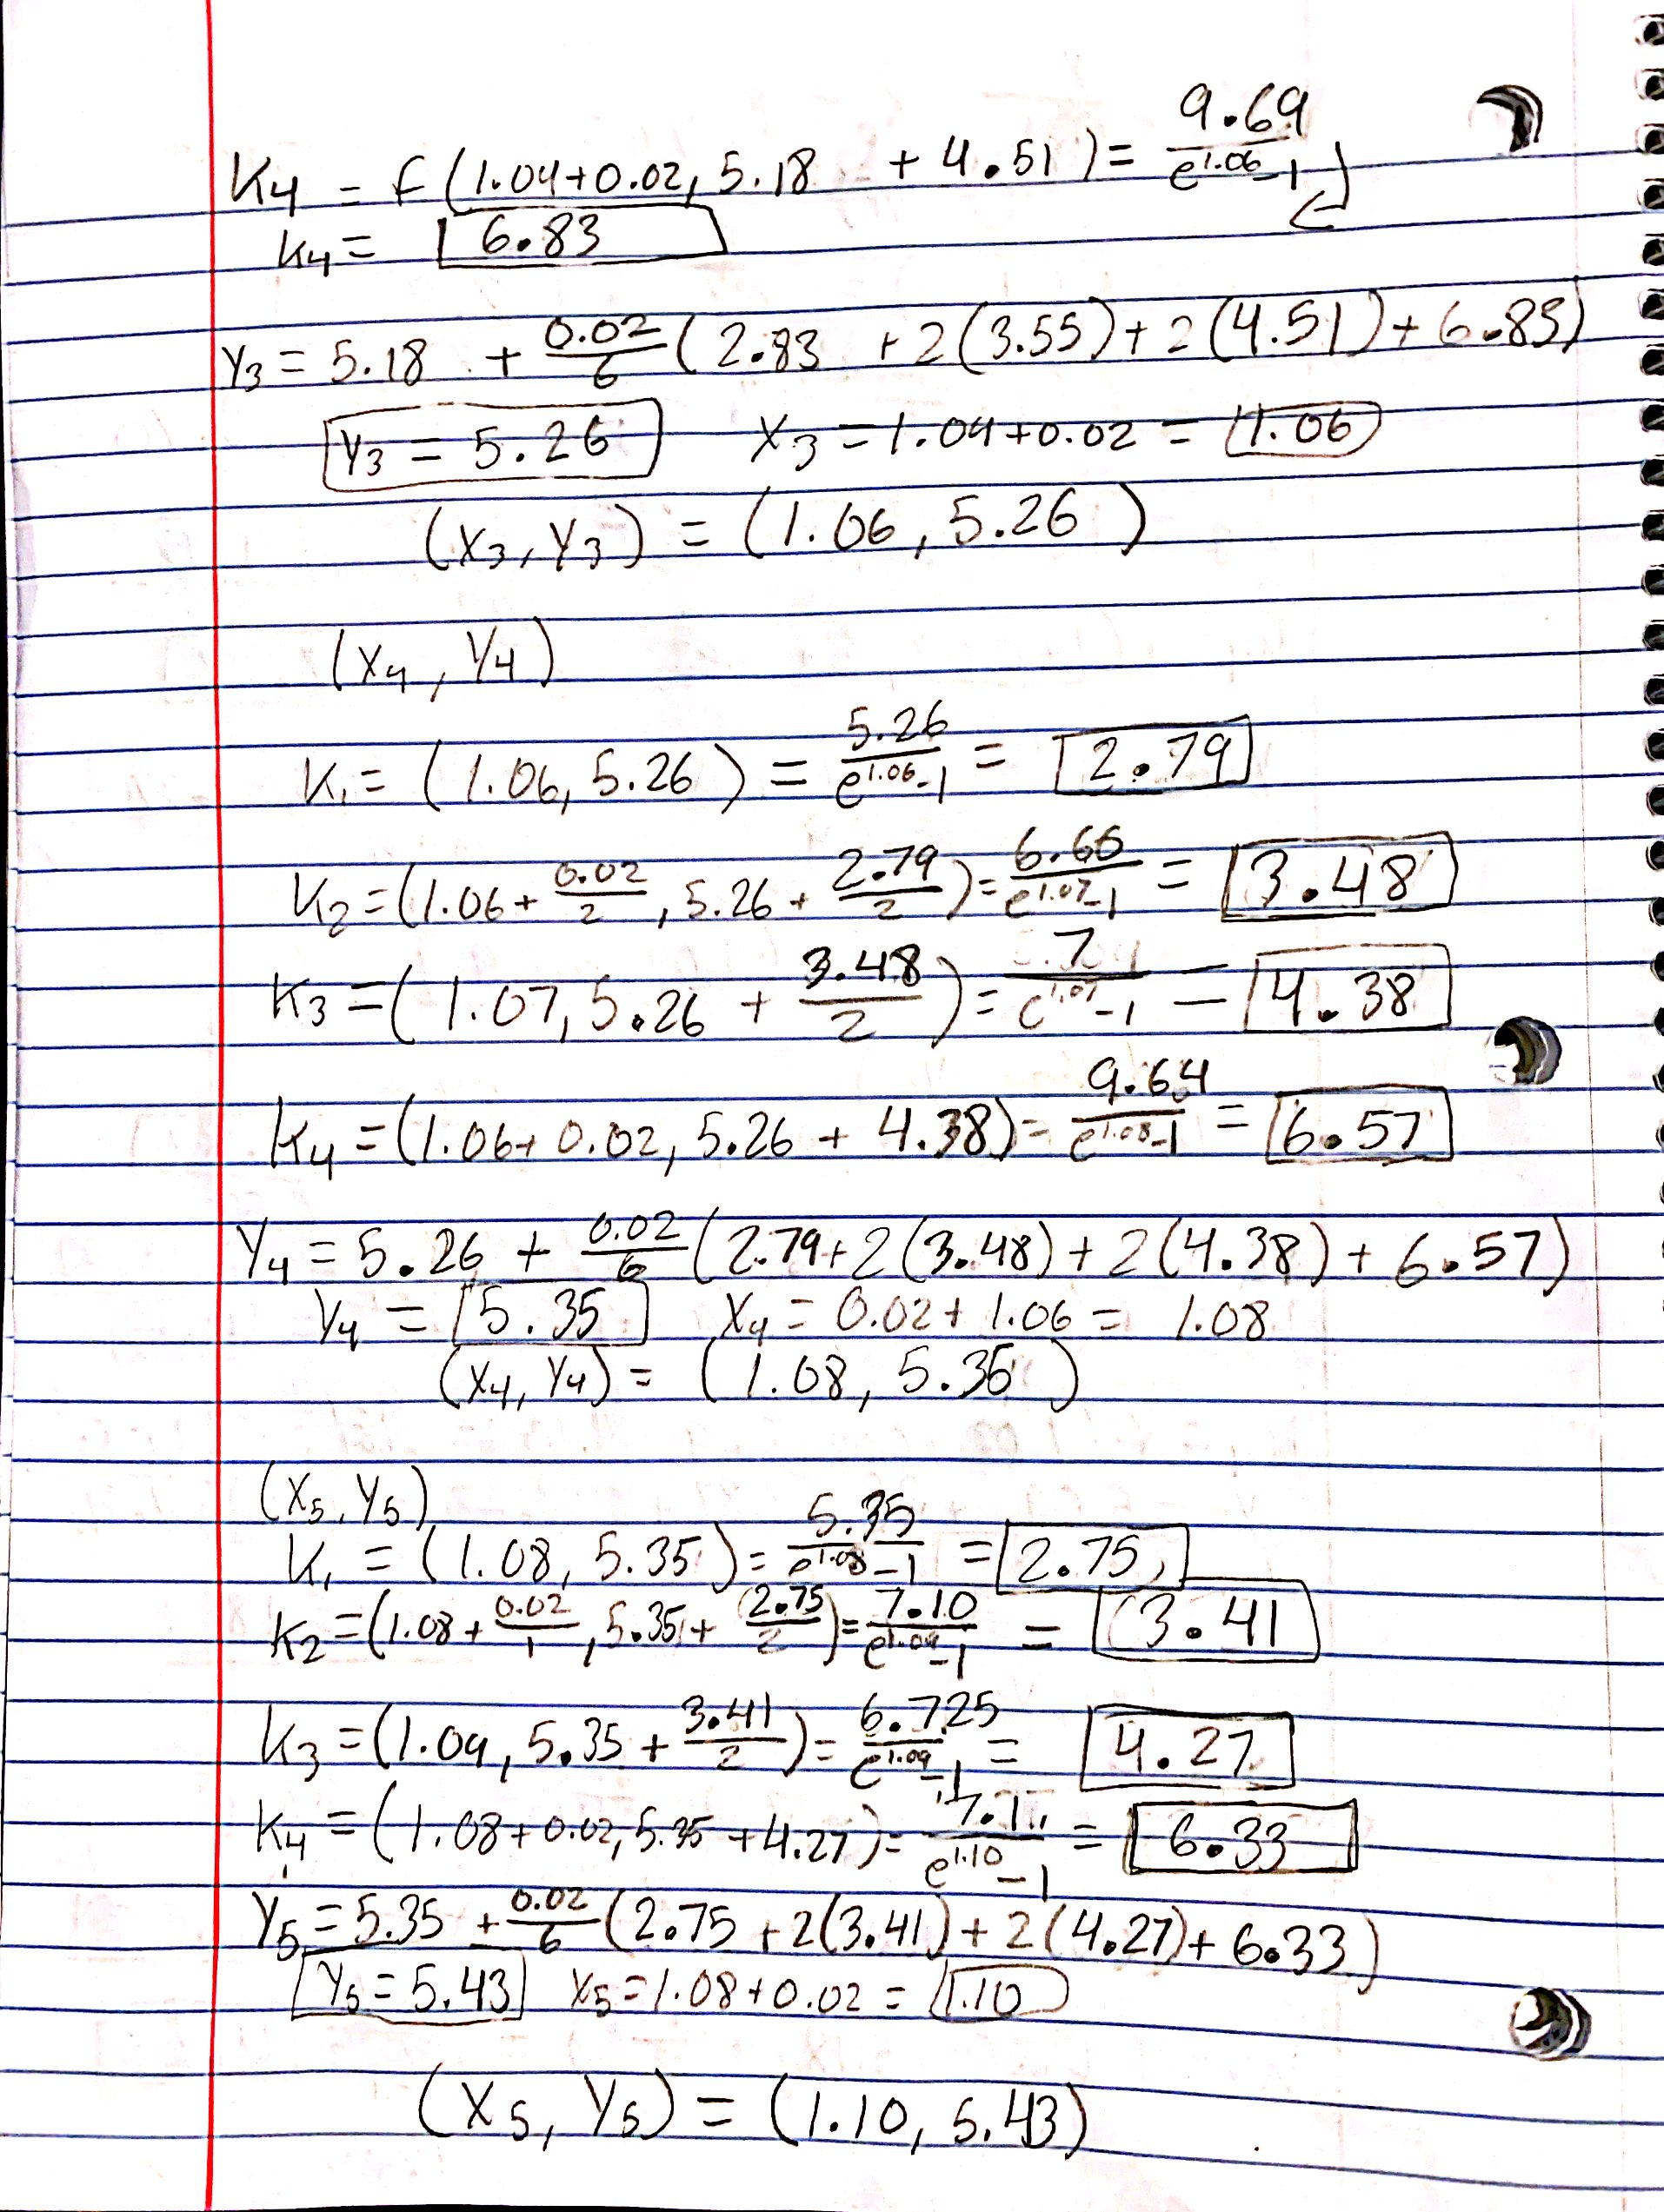 K4 = f(1.04+0.02, 5.18 + 4.51) = 9.69/(e^1.06-1)
K4 = 6.83
Y3 = 5.18 + 0.02/6 (2.83 + 2(3.55) + 2(4.51) + 6.83)
Y3 = 5.26 X3 = 1.04+0.02 = 1.06
(X3, Y3) = (1.06, 5.26)
(X4, Y4)
K1 = (1.06, 5.26) = 5.26/(e^1.06-1) = 2.79
K2 = (1.06 + 0.02/2, 5.26 + 2.79/2) = 6.66/(e^1.07-1) = 3.48
K3 = (1.07, 5.26 + 3.48/2) = 7/(e^1.07-1) = 4.38
K4 = (1.06+0.02, 5.26 + 4.38) = 9.64/(e^1.08-1) = 6.57
Y4 = 5.26 + 0.02/6 (2.79+2(3.48) + 2(4.38) + 6.57)
Y4 = 5.35 X4 = 0.02 + 1.06 = 1.08
(X4, Y4) = (1.08, 5.35)
(X5, Y5)
K1 = (1.08, 5.35) = 5.35/(e^1.08-1) = 2.75
K2 = (1.08 + 0.02/1, 5.35 + 2.75/2) = 7.10/(e^1.09-1) = 3.41
K3 = (1.09, 5.35 + 3.41/2) = 6.725/(e^1.09-1) = 4.27
K4 = (1.08+0.02, 5.35 + 4.27) = /(e^1.10-1) = 6.33
Y5 = 5.35 + 0.02/6 (2.75 + 2(3.41) + 2(4.27) + 6.33)
Y5 = 5.43 X5 = 1.08+0.02 = 1.10
(X5, Y5) = (1.10, 5.43)